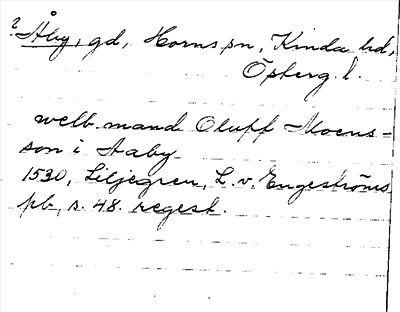 ? Åby, gd, Horns sn, Kinda hd,
Östergl.
welb. mand Oluff Moens-
son i Aaby
1530, Liljegren, L. v. Engeströms
pb, s. 48. regest.